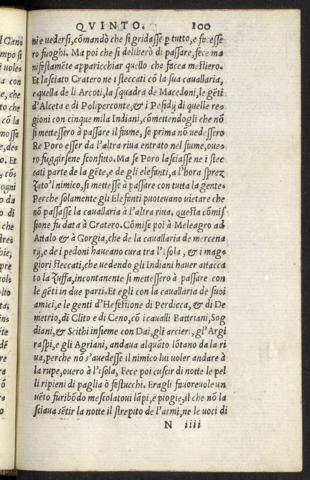 QVINTO. 100
ni e uedersi, cõmandò che si gridasse ꝑ tutto, e fi esse
ro fuoghi. Ma poi che si deliberò di passare, fece ma
nifestamẽte apparicchiar quello che facea mestiero.
Et lasciato Cratero ne i steccati cõ la sua cauallaria,
e quella de li Arcoti, la squadra de Macedoni, le gẽti
d'Alceta e di Poliperconte, & i Pesidij di quelle re-
gioni con cinque mila Indiani, cõmettendogli che nõ
si mettessero à passare il fiume, se prima nõ uedessero
Re Poro esser da l'altra riua entrato nel fiume, oue-
ro fuggirsene sconfitto. Ma se Poro lasciasse ne i stec
cati parte de la gẽte, e de gli elefanti, a l'hora sprez
zato'l nimico, si mettesse à passare con tutta la gente.
Perche solamente gli Elefanti puoteuano uietare che
nõ passasse la cauallaria à l'altra riua, questa cõmis
sione fu data à Cratero. Cõmise poi à Meleagro ad
Attalo & à Gorgia, che de la cauallaria de mercena
rij, e de i pedoni haueano cura tra l'isola, & i mag-
giori steccati, che uedendo gli Indiani hauer attacca
to la zuffa, incontanente si mettessero à passare con
le gẽti in due parti. Et egli con la cauallaria de suoi
amici, e le genti d'Hefestione di Perdicca, & di De
metrio, di Clito e di Ceno, cõ i caualli Battriani, Sog
diani, & Scithi insieme con Dai, gli arcieri, gl'Argi
raspi, e gli Agriani, andaua alquãto lõtano da la ri
ua, perche nõ s'auedesse il nimico lui uoler andare à
la rupe, ouero à l'isola, Fece poi cuscir di notte le pel
li ripieni di paglia ò festucchi. Eragli fauoreuole un
uẽto furibõdo mescolatoui lãpi, e piogie, il che nõ la
sciaua sẽtir la notte il strepito de l'armi, ne le uoci di
N iiii